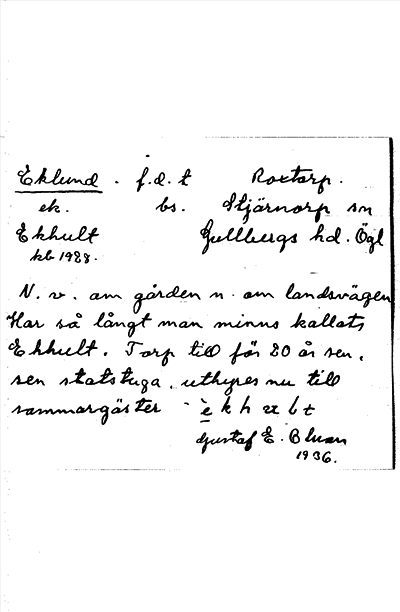 Eklund . f.d. t Roxtorp .
ek. bs. Stjärnorp sn
Ekhult Gullbergs hd. Ögl
kb 1928.
N. v. om gården n. om landsvägen
Har så långt man minns kallats
Ekhult. Torp till för 20 år sen,
sen statstuga, uthyres nu till
sommargäster
Gustaf E. Bluan
1936.